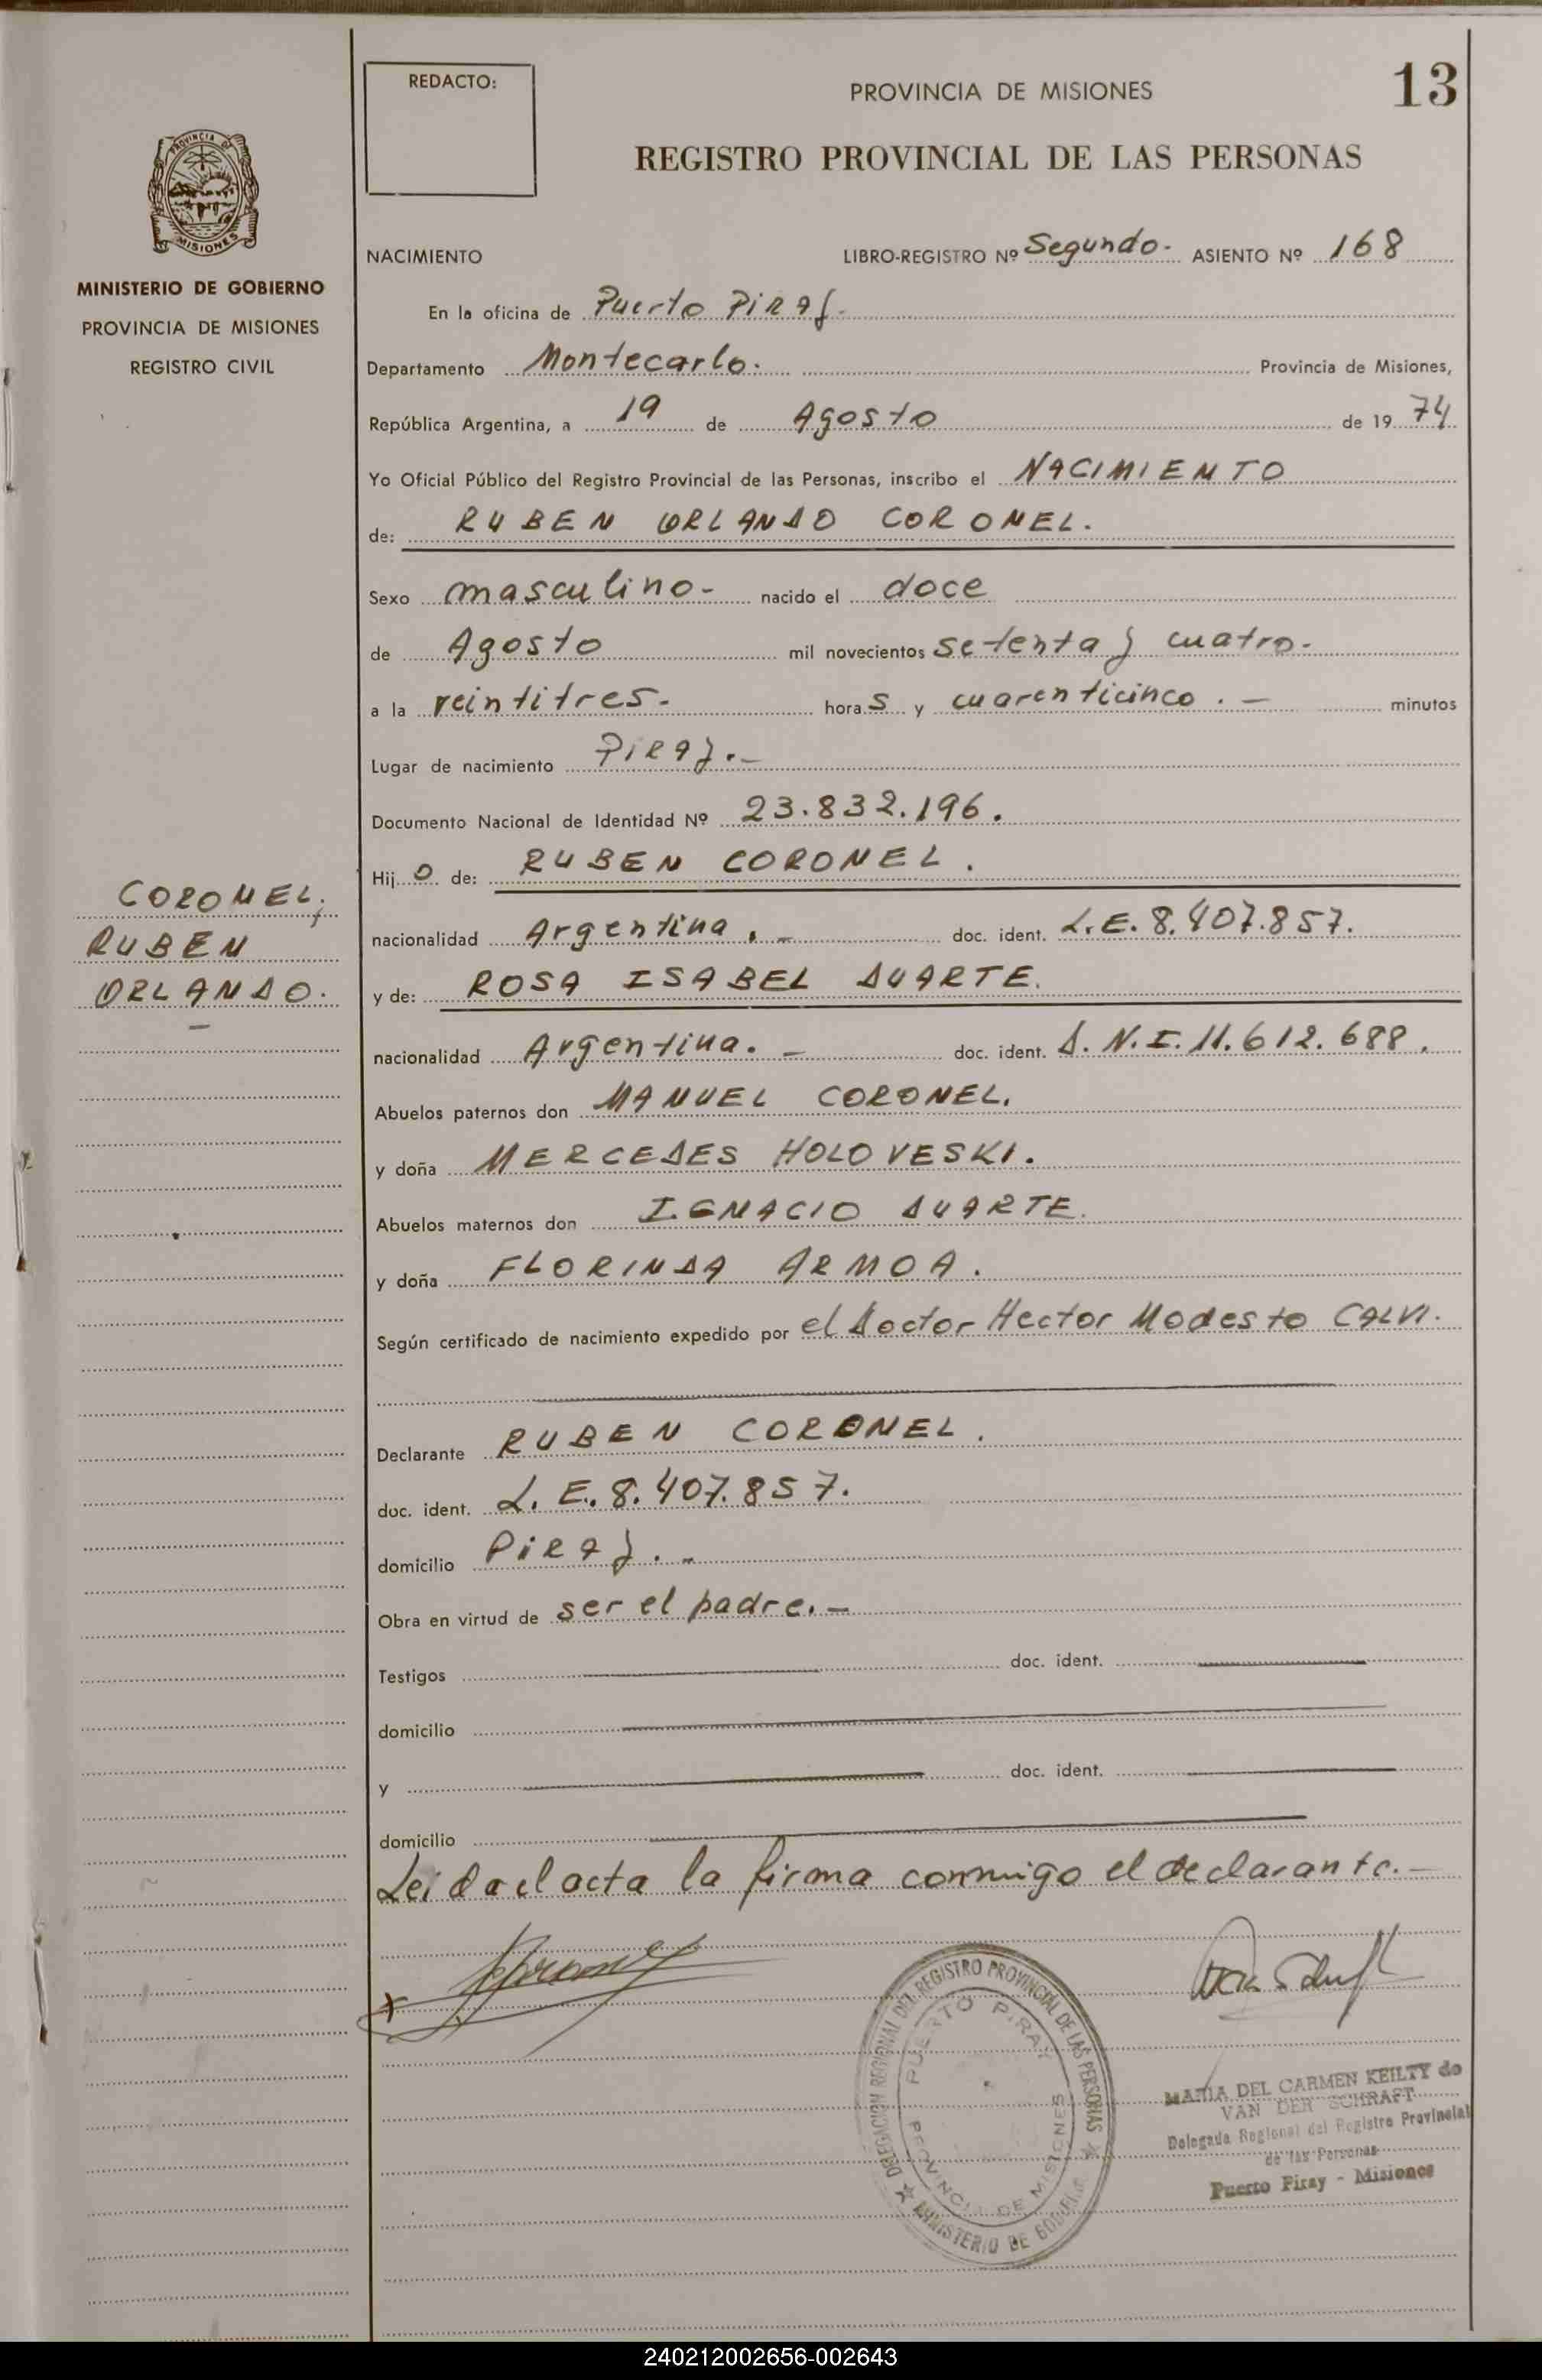 REDACTO:
PROVINCIA DE MISIONES
13
REGISTRO PROVINCIAL DE LAS PERSONAS
PROVINCIA DE
MISIONES
MINISTERIO DE GOBIERNO
PROVINCIA DE MISIONES
REGISTRO CIVIL
NACIMIENTO LIBRO-REGISTRO Nº Segundo.- ASIENTO Nº 168
En la oficina de Puerto Piray.
Departamento Montecarlo. Provincia de Misiones,
República Argentina, a 19 de Agosto de 1974
Yo Oficial Público del Registro Provincial de las Personas, inscribo el NACIMIENTO
de: RUBEN ORLANDO CORONEL.
Sexo masculino- nacido el doce
de Agosto mil novecientos setenta y cuatro.
a la veintitres- horas y cuarenticinco.- minutos
Lugar de nacimiento Piray.-
Documento Nacional de Identidad Nº 23.832.196.
Hijo de: RUBEN CORONEL.
CORONEL,
RUBEN
ORLANDO.
nacionalidad Argentina.- doc. ident. L.E. 8.407.857.
y de: ROSA ISABEL DUARTE.
nacionalidad Argentina.- doc. ident. D.N.I. 11.612.688.
Abuelos paternos don MANUEL CORONEL.
y doña MERCEDES HOLOVESKI.
Abuelos maternos don IGNACIO DUARTE.
y doña FLORINDA ARMOA.
Según certificado de nacimiento expedido por el Doctor Hector Modesto CALVI.
Declarante RUBEN CORONEL.
doc. ident. L.E. 8.407.857.
domicilio Piray.-
Obra en virtud de ser el padre.-
Testigos doc. ident.
domicilio
y doc. ident.
domicilio
Leida el acta la firma conmigo el declarante.-
DELEGACION REGIONAL DEL REGISTRO PROVINCIAL DE LAS PERSONAS
MINISTERIO DE GOBIERNO
PUERTO PIRAY
PROVINCIA DE MISIONES
MARIA DEL CARMEN KEILTY de
VAN DER SCHRAFT
Delegada Regional del Registro Provincial
de las Personas
Puerto Piray - Misiones
240212002656-002643